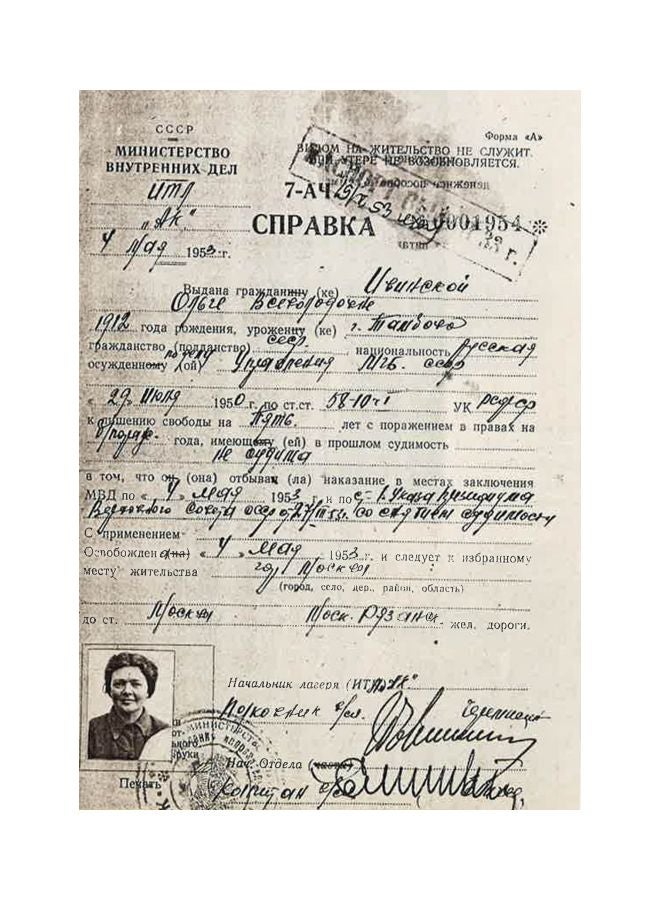 СССР
МИНИСТЕРСТВО
ВНУТРЕННИХ ДЕЛ
ИТЛ
„АК“
4 Мая 1953 г.
Форма «А»
ВИДОМ НА ЖИТЕЛЬСТВО НЕ СЛУЖИТ.
ПРИ УТЕРЕ НЕ ВОЗОБНОВЛЯЕТСЯ.
7-АЧ 0001954 *
СПРАВКА
Выдана гражданину (ке) Ивинской
Ольге Всеволодовне
1912 года рождения, уроженцу (ке) г. Тамбова
гражданство (подданство) СССР, национальность русская
осужденному (ой) по делу Управления МГБ. СССР
« 29 Июля 1950 г. по ст.ст. 58-10 ч 1 УК РСФСР
к лишению свободы на Пять лет с поражением в правах на
года, имеющему (ей) в прошлом судимость
не судима
в том, что он (она) отбывал (ла) наказание в местах заключения
МВД по « 4 » мая 1953 г. и по ст 1 Указа Президиума
Верховного Совета СССР от 27/III 53г. со снятием судимости
С применением
Освобожден(на) « 4 » Мая 1953 г. и следует к избранному
месту жительства гор. Москва
(город, село, дер., район, область)
до ст. Москва Моск. Рязанск. жел. дороги.
Начальник лагеря (ИТЛ „АК“
Полковник
Нач. Отдела (части)
Печать Капитан